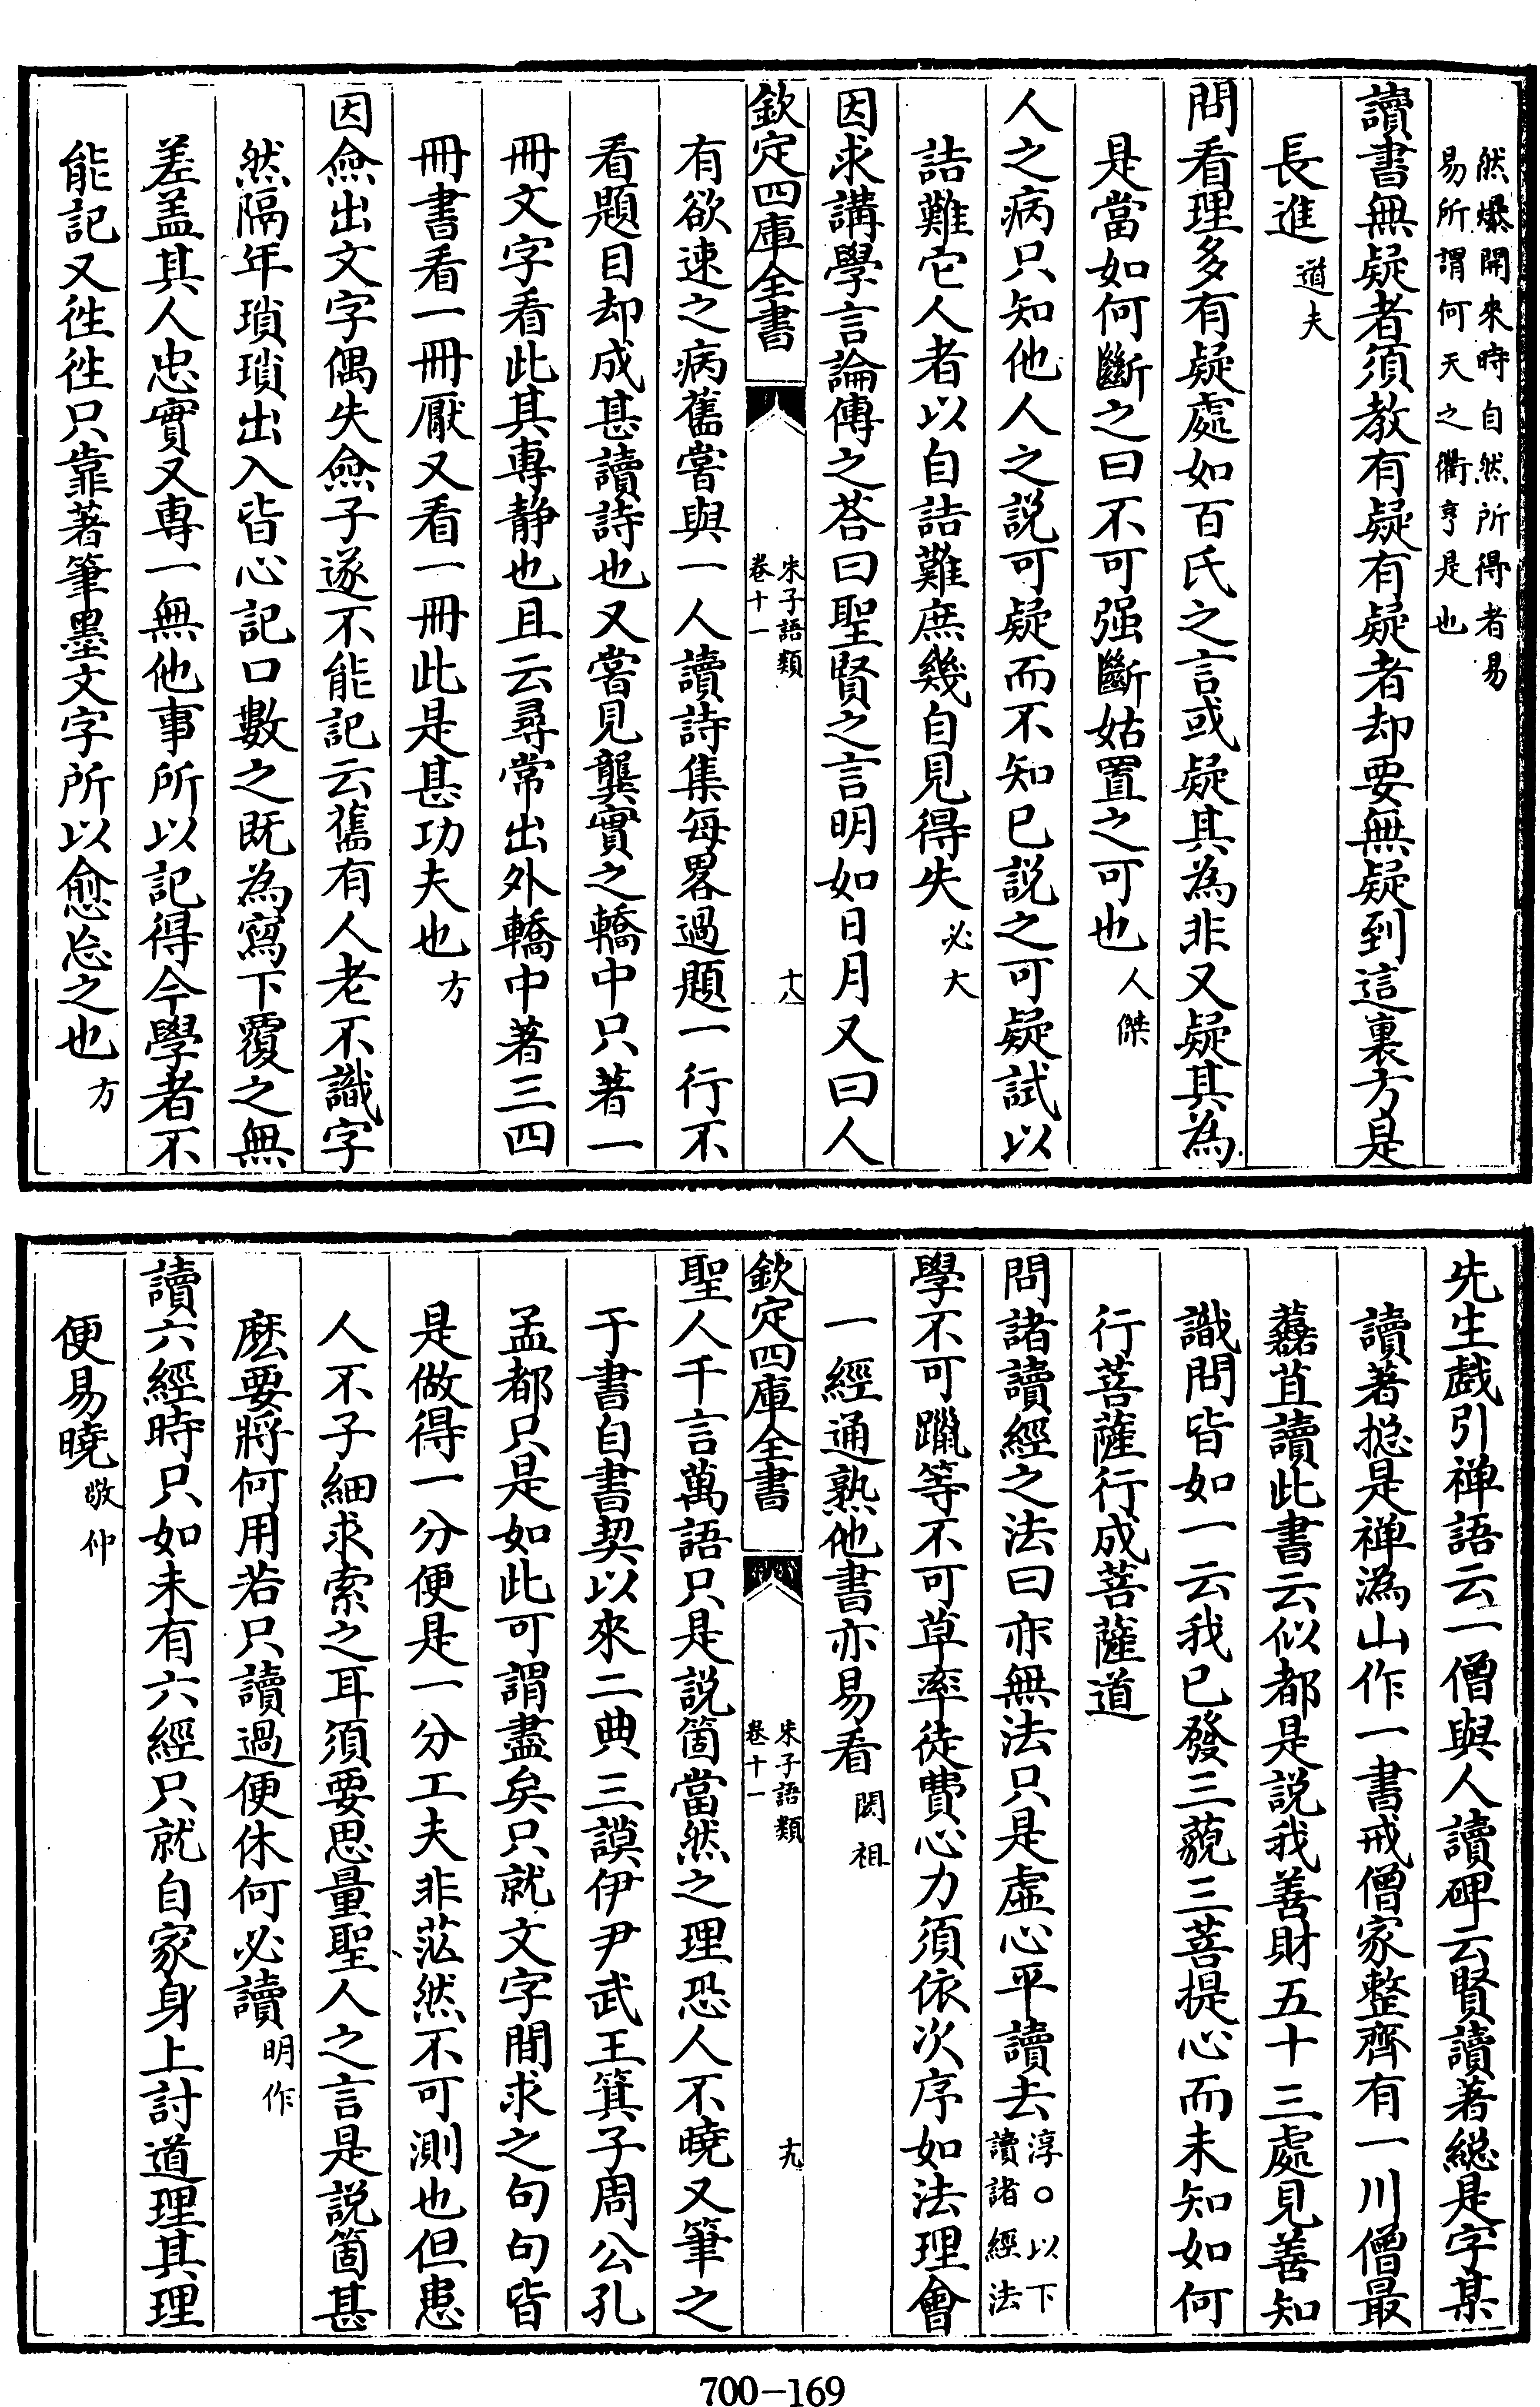 然爆開來時自然所得者易
易所謂何天之衢亨是也
讀書無疑者須教有疑有疑者却要無疑到這裏方是
長進道夫
問看理多有疑處如百氏之言或疑其為非又疑其為
是當如何斷之曰不可强斷姑置之可也人傑
人之病只知他人之説可疑而不知已説之可疑試以
詰難它人者以自詰難庶幾自見得失必大
因求講學言論傳之荅曰聖賢之言明如日月又曰人
欽定四庫全書
朱子語類
卷十一
十八
有欲速之病舊嘗與一人讀詩集每畧過題一行不
看題目却成甚讀詩也又嘗見龔實之轎中只著一
冊文字看此其專静也且云尋常出外轎中著三四
冊書看一冊厭又看一冊此是甚功夫也方
因僉出文字偶失僉子遂不能記云舊有人老不識字
然隔年瑣瑣出入皆心記口數之既為寫下覆之無
差盖其人忠實又專一無他事所以記得今學者不
能記又徃徃只靠著筆墨文字所以愈忘之也方
先生戲引禅語云一僧與人讀碑云賢讀著総是字某
讀著揔是禅溈山作一書戒僧家整齊有一川僧最
蠚苴讀此書云似都是説我善財五十三處見善知
識問皆如一云我已發三藐三菩提心而未知如何
行菩薩行成菩薩道
問諸讀經之法曰亦無法只是虛心平讀去淳○以下
讀諸經法
學不可躐等不可草率徒費心力須依次序如法理會
一經通熟他書亦易看閎祖
欽定四庫全書
朱子語類
卷十一
十九
聖人千言萬語只是説箇當然之理恐人不曉又筆之
于書自書契以來二典三謨伊尹武王箕子周公孔
孟都只是如此可謂盡矣只就文字間求之句句皆
是做得一分便是一分工夫非茫然不可測也但患
人不子細求索之耳須要思量聖人之言是説箇甚
麽要將何用若只讀過便休何必讀明作
讀六經時只如未有六經只就自家身上討道理其理
便易曉敬仲
700-169